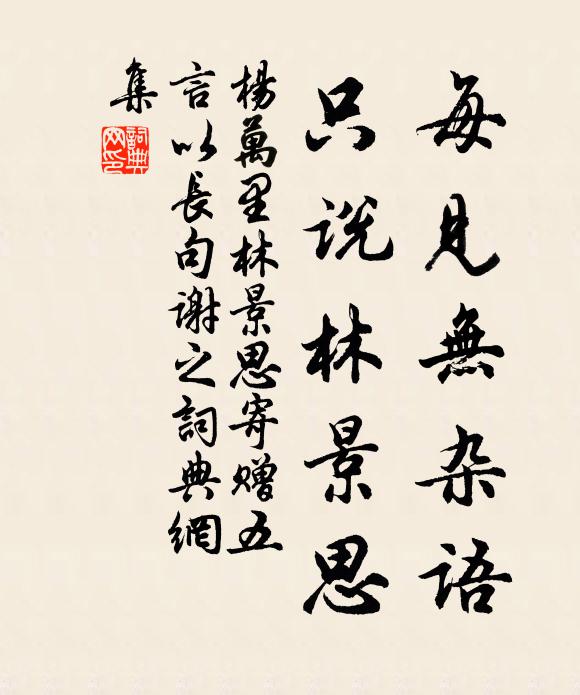 每見無杂語
只說林景思
楊萬里林景思寄贈五
言以長句謝之詞典網
集
詞典
网印